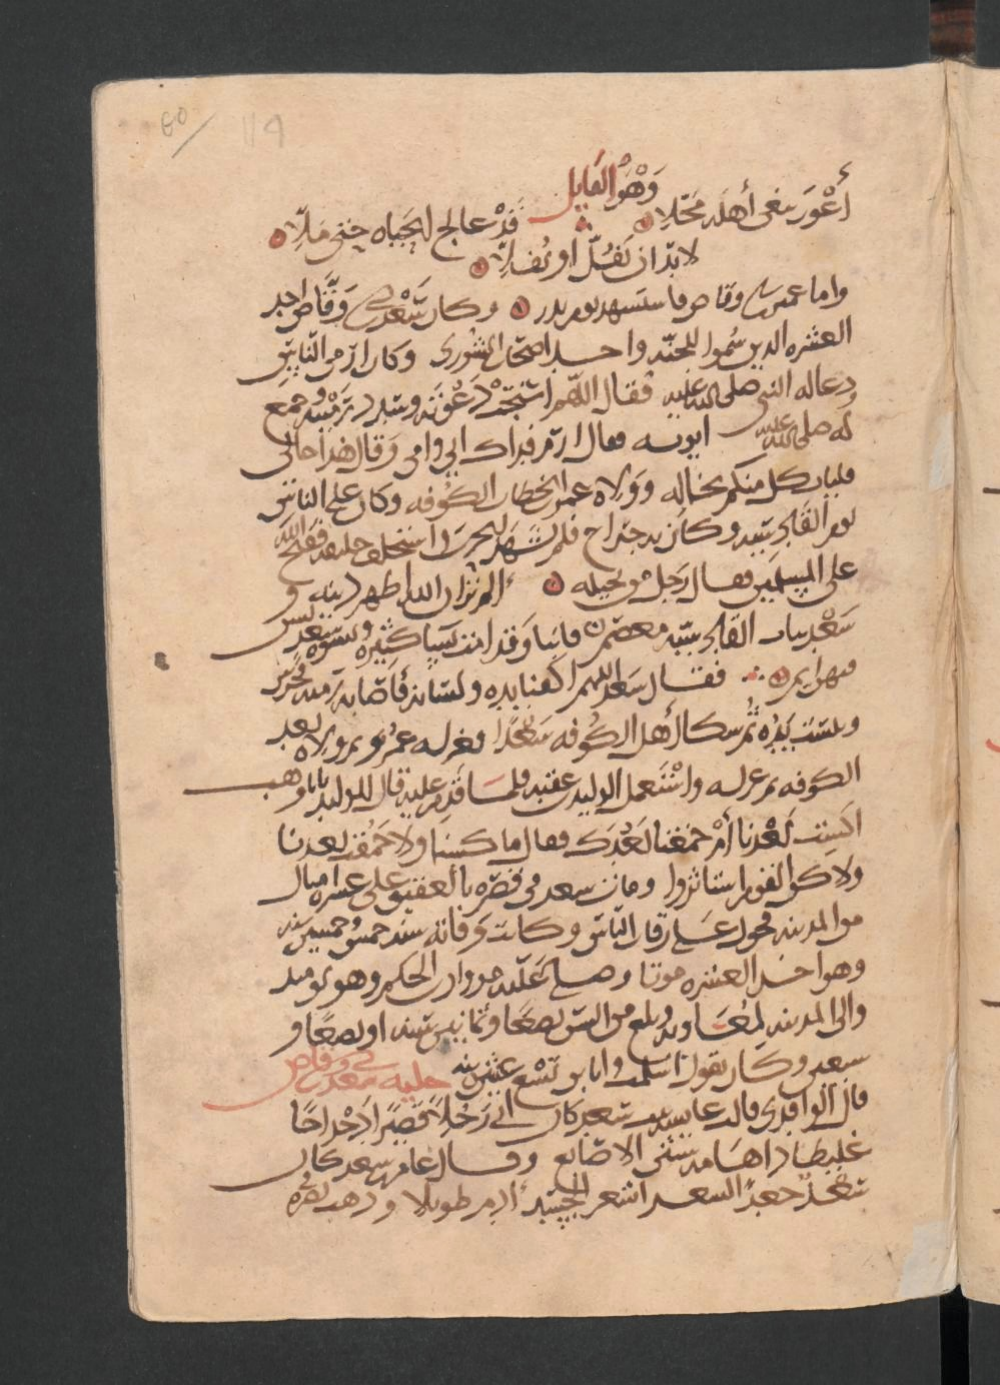 وَهْوَ القايل
أعْوَر يبغى أهله مَحَلّا قَدْ عالج الحَياه حتى مَلّا
لا بدّ ان يَفُلّ او يُفَلّا
واما عمير بن وقاص فاستشهد يوم بدر وكان سَعْد بن وَقّاص احد
العشره الذين سُموا للجنّه واحد اصحاب الشورى وكان ارمى الناس
ودعا له النبي صلى الله عليه فقال اللهم استجب دَعْوَته وسدد رَمْيته وجمع
له صلى الله عليه ابويه فقال ارم فداك ابي وامي وقال هذا خالي
فليات كل منكم بخاله وولاه عمر بن الخطاب الكُوفه وكان على الناس
يوم القادسيه وكان به جراح فلم يشهد الحرب استخلف ففتح الله
على المسلمين فقال رجل من بجيله ألم تر ان الله اظهر دينه و
سَعْد بباب القادسيه معصم فابنا وقد امت نسا كثيره ونسوه سعد ليس
فيهن ايم فقال سعد اللهم اكفنا يده ولسانه فأصابته رميه فخرس
ويبست يَدُه ثم شكا أهل الكُوفه سَعْدًا فعزله عمر ثم ولاه بعد
الكوفه ثم عزله واسْتَعمل الوليد بن عقبه فلما قَدِم عليه قال للوليد يابا وهب
اكست بَعْدنا أمْ حمقنا بَعْدك فقال ما كسنا ولا حَمُقت بعدنا
ولاكن القوم استاثروا ومات سعد في قصره بالعقيق على عشره اميال
من المدينه فحمل على رقاب الناس وكانت وفاته سنه خمس وخمسين سنه
وهو اخر العشره موتا وصلى عَلَيه مروان بن الحكم وهو يوميذ
والى المدينه لمُعاويه وبلغ من السن بضعًا وثمانين سنه او بضعًا و
سبعين وكان يقول اسلمت وانا بن تسع عشره سنه حليه سعد بن وقاص
قال الواقدى قالت عايشه بنت سعد كان ابي رَجُلًا قَصيرًا دَحْداحًا
غليظا ذا هامه شثن الاصابع وقال عامر بن سعد كان
سعد جعد اشعر الجسد ادم طويلا وذهب بصره